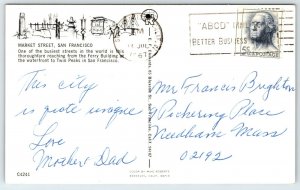 MARKET STREET, SAN FRANCISCO
One of the busiest streets in the world is this
thoroughfare reaching from the Ferry Building at
the waterfront to Twin Peaks in San Francisco.
"ABCD"
BETTER BUSINESS
5¢ U.S. POSTAGE
This city
is quite unique
Love
Mother Dad
Mr Francis Brighton
Pickering Place
Needham Mass
02192
C4241
COLOR BY MIKE ROBERTS
BERKELEY, CALIF. 94710